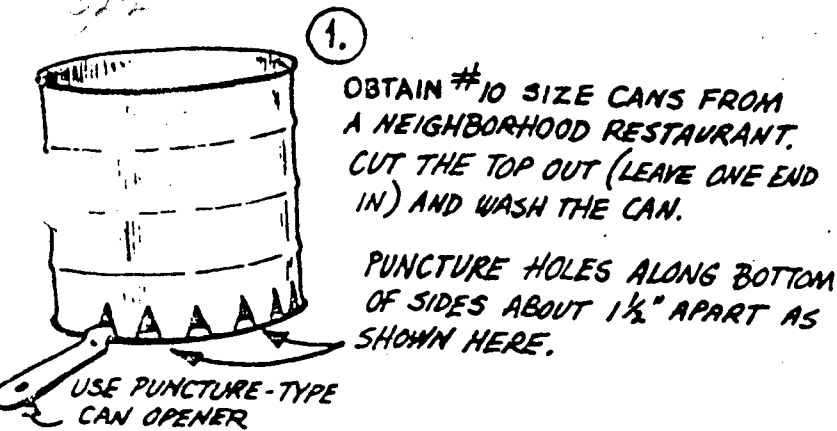 1.
OBTAIN #10 SIZE CANS FROM
A NEIGHBORHOOD RESTAURANT.
CUT THE TOP OUT (LEAVE ONE END
IN) AND WASH THE CAN.
PUNCTURE HOLES ALONG BOTTOM
OF SIDES ABOUT 1½" APART AS
SHOWN HERE.
USE PUNCTURE-TYPE
CAN OPENER